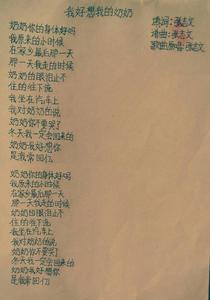 我好想我的奶奶
填词:张志文
谱曲:张志文
歌曲原唱:张志文
奶奶你的身体好吗
我原来的小时候
在家乡最后那一天
那一天我走的时候
奶奶的眼泪止不
住的往下流
我坐在汽车上
我对奶奶的说
奶奶你不要哭了
冬天我一定会回来的
奶奶我好想你
是我常回忆
奶奶你的身体好吗
我原来的小时候
在家乡最后那一天
那一天我走的时候
奶奶的眼泪止不
住的往下流
我坐在汽车上
我对奶奶的说
奶奶你不要哭了
冬天我一定会回来的
奶奶我好想你
是我常回忆